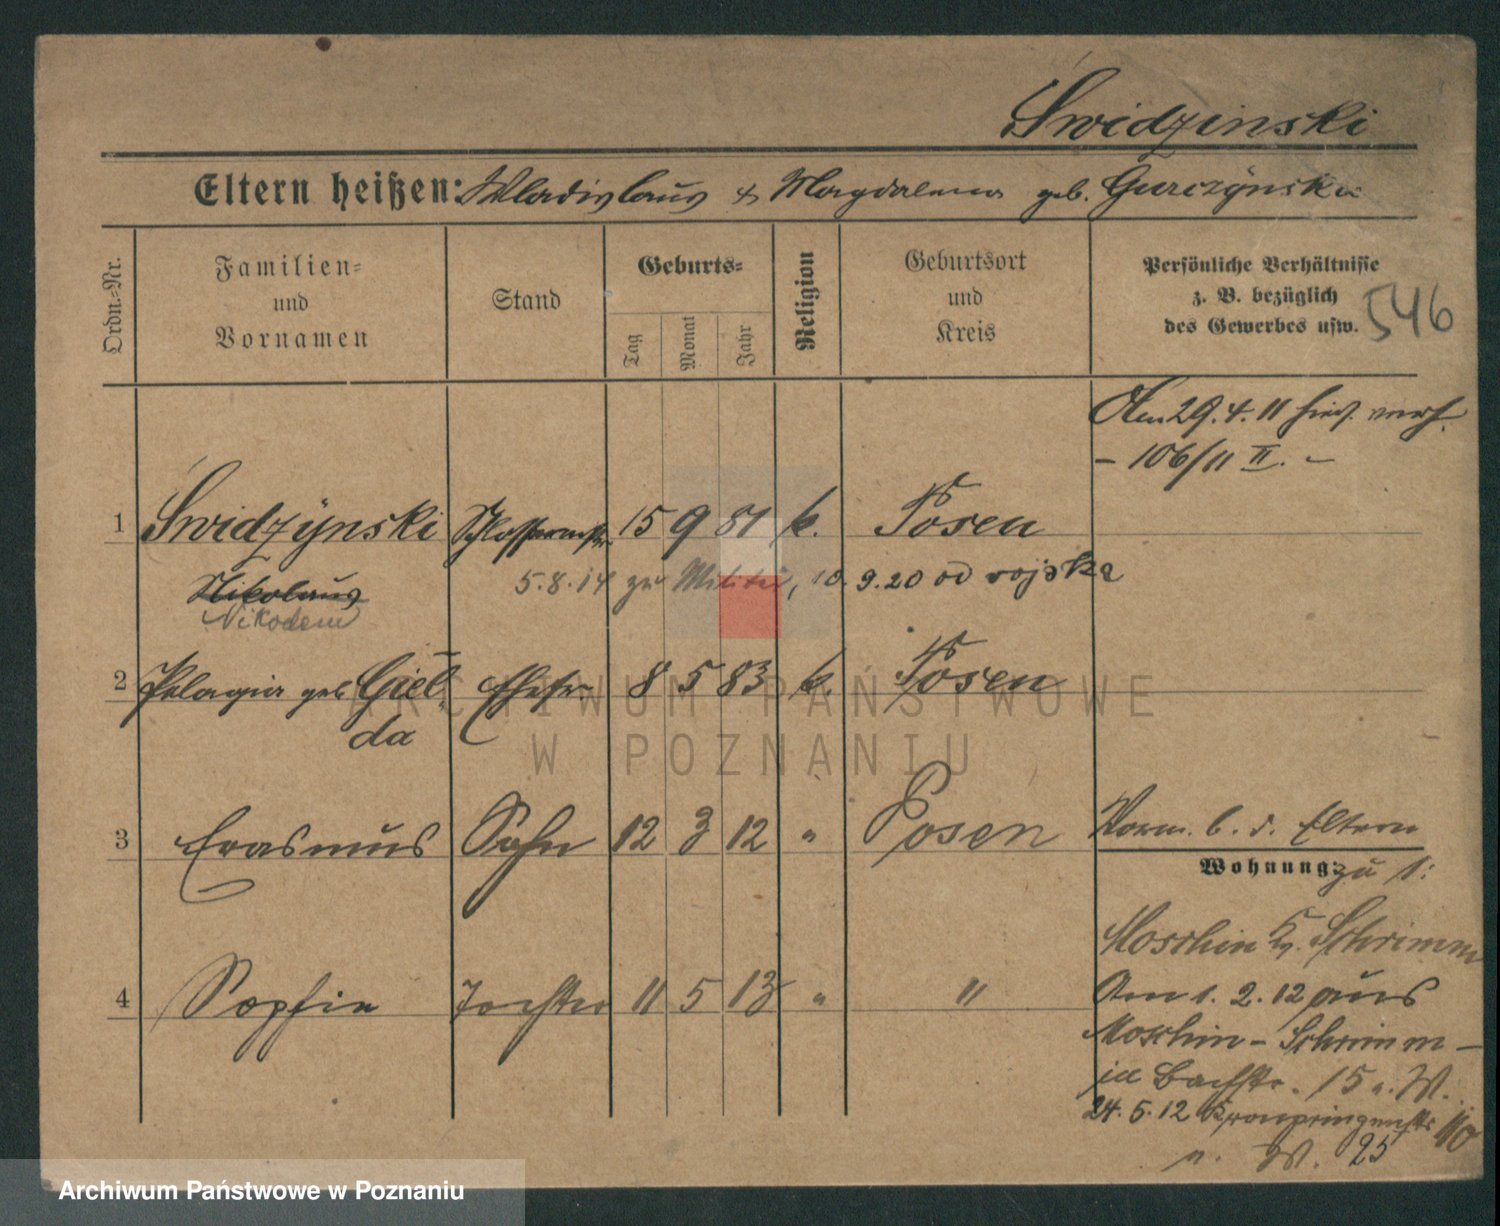 Świdzinski
Eltern heißen: Wladislaus & Magdalena geb. Gurczynska
Ordn.-Nr.
Familien-
und
Vornamen
Stand
Geburts-
Tag
Monat
Jahr
Religion
Geburtsort
und
Kreis
Persönliche Verhältnisse
z. B. bezüglich
des Gewerbes usw.
546
Am 29.4.11 hies. verh.
- 106/11 II. -
1 Świdzÿnski Schlossermstr. 15 9 81 k. Posen
5.8.14 zu Militär, 10.9.20 od wojska
Nikolaus
Nikodem
2 Pelagia geb. Gieł- Ehefr. 8 5 83 k. Posen
da
3 Erasmus Sohn 12 3 12 " Posen
Vorm. b. d. Eltern
Wohnung: zu 1:
Moschin Kr. Schrimm
4 Sophie Tochter 11 5 13 " "
Am 1.2.12 aus
Moschin - Schrimm -
in Bachstr. 15 n. W.
24.5.12 Kronprinzenstr. 110
n. W. 25
ARCHIWUM PAŃSTWOWE
W POZNANIU
Archiwum Państwowe w Poznaniu